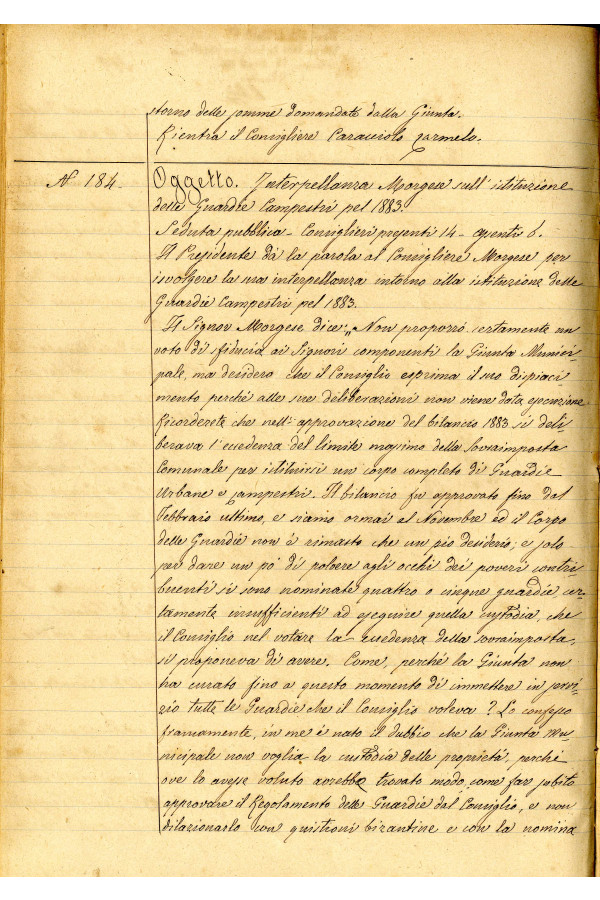 storno delle somme domandate dalla Giunta.
Rientra il Consigliere Caracciolo Carmelo.
N° 184.
Oggetto. Interpellanza Morgese sull'istituzione
delle Guardie Campestri pel 1883.
Seduta pubblica - Consiglieri presenti 14 - assenti 6.
Il Presidente dà la parola al Consigliere Morgese per
isvolgere la sua interpellanza intorno alla istituzione delle
Guardie Campestri pel 1883.
Il Signor Morgese dice: „Non proporrò certamente un
voto di sfiducia ai Signori componenti la Giunta Munici-
pale, ma desidero che il Consiglio esprima il suo dispiaci-
mento perché alle sue deliberazioni non viene data esecuzione.
Ricorderete che nell'approvazione del bilancio 1883 si deli
berava l'eccedenza del limite massimo della Sovraimposta
Comunale per istituirsi un corpo completo di Guardie
Urbane e Campestri. Il bilancio fu approvato fino dal
Febbraio ultimo, e siamo ormai al Novembre ed il Corpo
delle Guardie non è rimasto che un pio desiderio; e solo
per dare un pò di polvere agli occhi dei poveri contri-
buenti si sono nominate quattro o cinque guardie cer-
tamente insufficienti ad eseguire quella custodia, che
il Consiglio nel votare la eccedenza della sovraimposta,
si proponeva di avere. Come, perché la Giunta non
ha curato fino a questo momento di immettere in servi-
zio tutte le Guardie che il Consiglio voleva? Lo confesso
francamente, in me è nato il dubbio che la Giunta Mu-
nicipale non voglia la custodia delle proprietà, perché
ove lo avesse voluto avrebbe trovato modo come far subito
approvare il Regolamento delle Guardie dal Consiglio, e non
dilazionarlo con quistioni bizantine e con la nomina